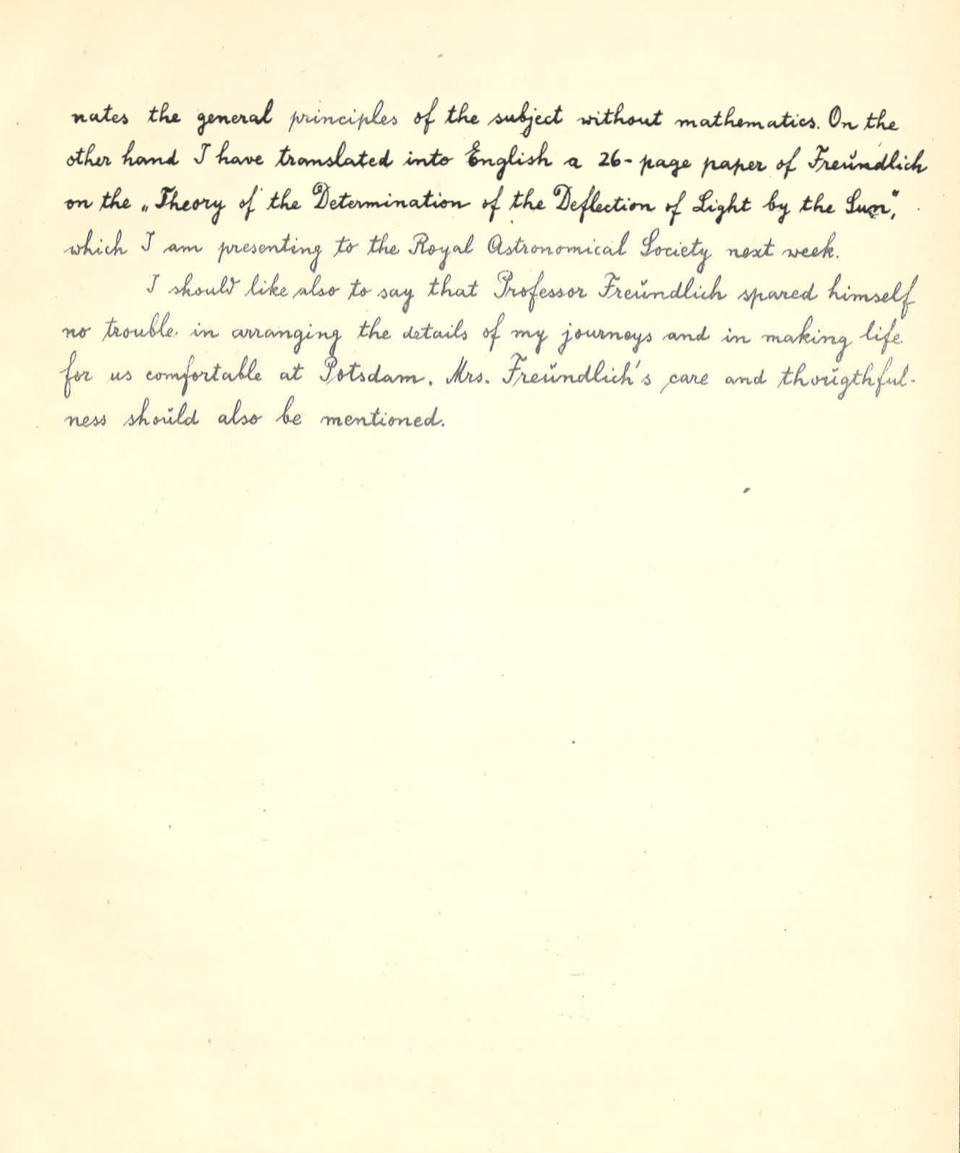 nates the general principles of the subject without mathematics. On the
other hand I have translated into English a 26-page paper of Freŭndlich
on the „Theory of the Determination of the Deflection of Light by the Sun",
which I am presenting to the Royal Astronomical Society next week.
I should like also to say that Professor Freŭndlich spared himself
no trouble in arranging the details of my journeys and in making life
for us comfortable at Potsdam. Mrs. Freŭndlich's care and thoŭgthful-
ness shoŭld also be mentioned.